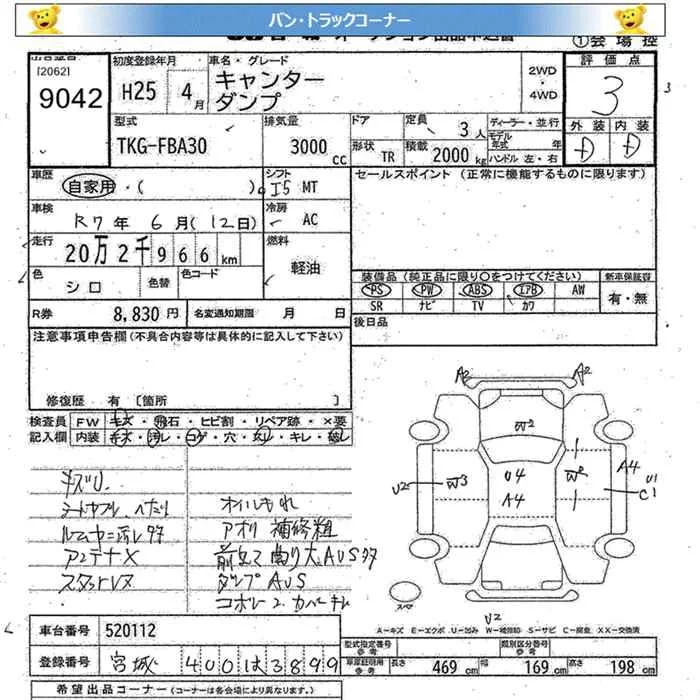 バン・トラックコーナー
①会場控
出品番号
[2062]
9042
初度登録年月
H25 4月
車名・グレード
キャンター
ダンプ
2WD
・
4WD
評価点
3
外装 内装
D D
型式
TKG-FBA30
排気量
3000 cc
ドア
形状 TR
定員 3人
積載 2000 kg
ディーラー・並行
モデル
年式 年
ハンドル 左・右
車歴
自家用・( )
シフト
I5 MT
セールスポイント (正常に機能するものに限ります)
車検
R7年 6月(12日)
冷房
AC
走行
20万2千966km
燃料
軽油
色
シロ
色替
色コード
装備品 (純正品に限り○をつけてください)
新車保証書
PS PW ABS エアB AW
有・無
SR ナビ TV カワ
R券 8,830円 名変通知期限 月 日
後日品
注意事項申告欄(不具合内容等は具体的に記入して下さい)
修復歴 有 [箇所 ]
検査員 FW キズ・飛石・ヒビ割・リペア跡・×要
記入欄 内装 キズ・汚レ・コゲ・穴・
・キレ・破レ
オイルもれ
アオリ 補修粗
アンテナX
前立て 曲り大 AUS
ダンプ AUS
A2 A2
W2
U2 W3
U4
A4
W2
A4
U1
C1
スペア
U2
A-キズ E-エクボ U-凹み W-補修跡 S-サビ C-腐食 XX-交換済
車台番号 520112
型式指定番号
参考
類別区分番号
参考
登録番号 宮城 400 は 3899
車庫証明用
参考
長さ 469 cm 幅 169 cm 高さ 198 cm
希望出品コーナー(コーナーは各会場により異なります。)